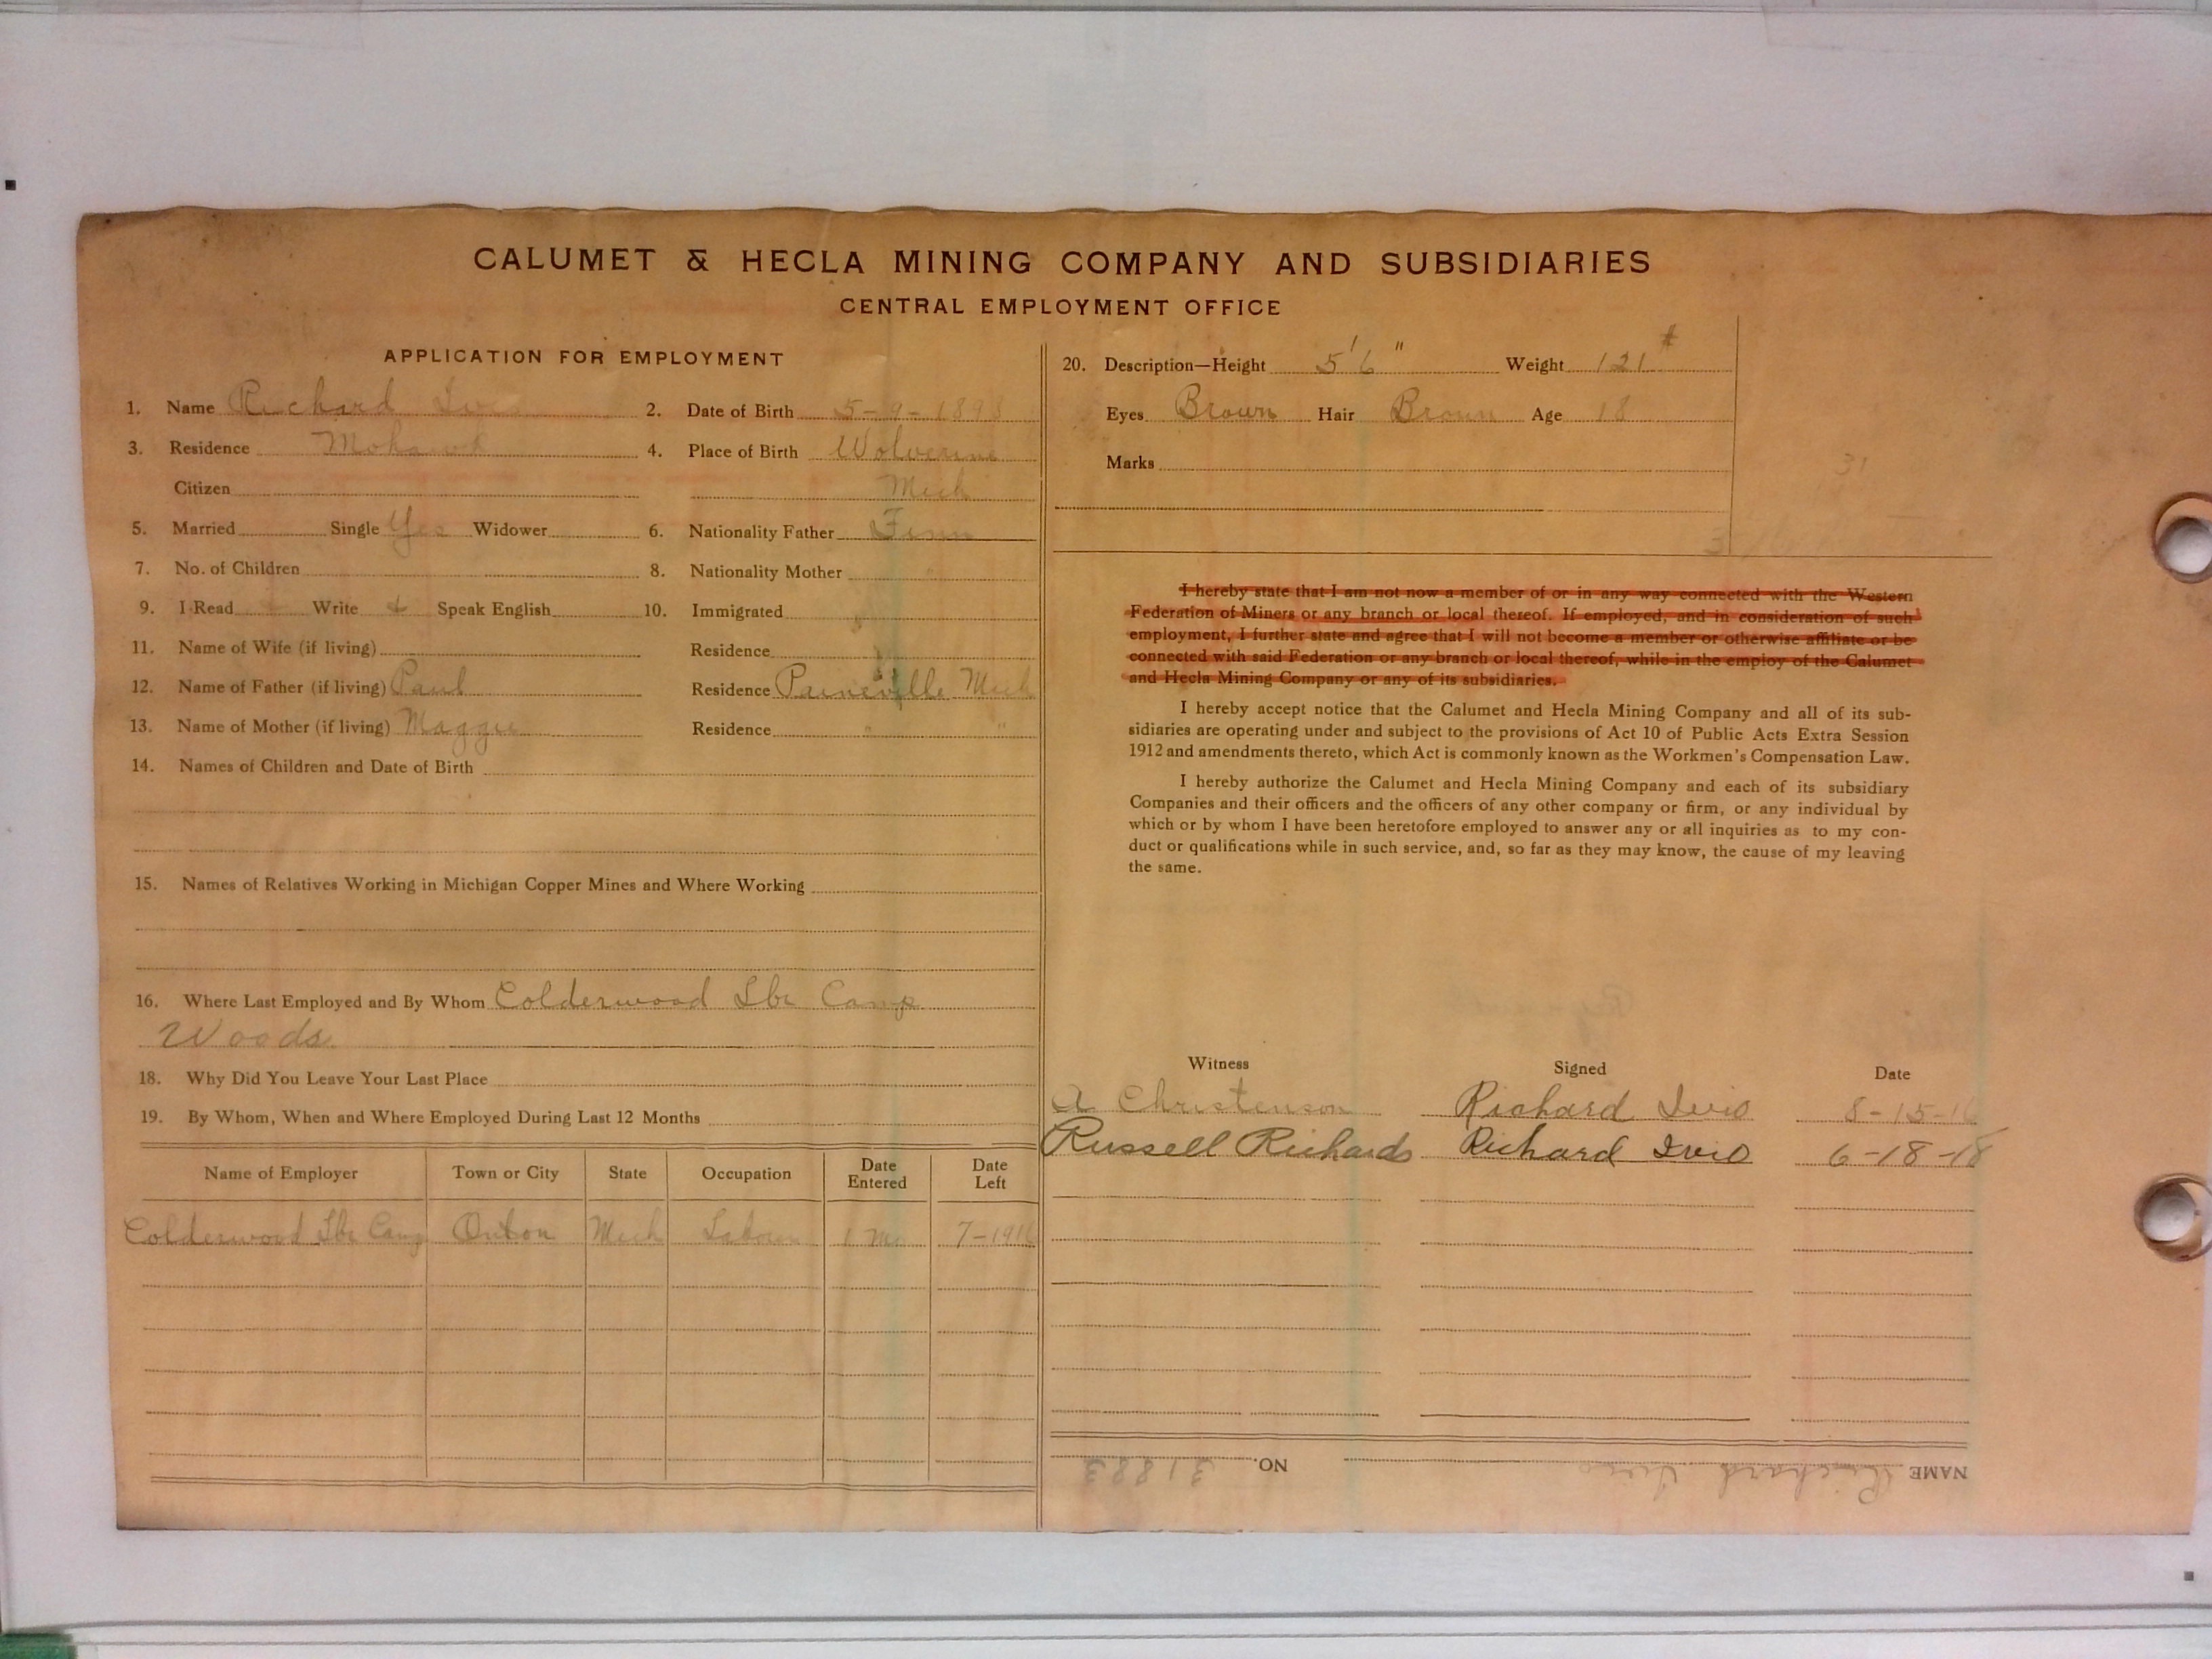 CALUMET & HECLA MINING COMPANY AND SUBSIDIARIES
CENTRAL EMPLOYMENT OFFICE
APPLICATION FOR EMPLOYMENT
1. Name Richard Ivio 2. Date of Birth 5-9-1898
3. Residence Mohawk 4. Place of Birth Wolverine
Citizen Mich
5. Married Single Yes Widower 6. Nationality Father Finn
7. No. of Children 8. Nationality Mother "
9. I Read Write Speak English 10. Immigrated
11. Name of Wife (if living) Residence
12. Name of Father (if living) Paul Residence Paineville Mich
13. Name of Mother (if living) Maggie Residence " "
14. Names of Children and Date of Birth
15. Names of Relatives Working in Michigan Copper Mines and Where Working
16. Where Last Employed and By Whom Colderwood Lbr Camp
Woods
18. Why Did You Leave Your Last Place
19. By Whom, When and Where Employed During Last 12 Months
Name of Employer Town or City State Occupation Date Entered Date Left
Colderwood Lbr Camp Onton Mich Labour 1 Mo 7-1916
20. Description—Height 5' 6" Weight 121 #
Eyes Brown Hair Brown Age 18
Marks
31
I hereby state that I am not now a member of or in any way connected with the Western
Federation of Miners or any branch or local thereof. If employed, and in consideration of such
employment, I further state and agree that I will not become a member or otherwise affiliate or be
connected with said Federation or any branch or local thereof, while in the employ of the Calumet
and Hecla Mining Company or any of its subsidiaries.
I hereby accept notice that the Calumet and Hecla Mining Company and all of its sub-
sidiaries are operating under and subject to the provisions of Act 10 of Public Acts Extra Session
1912 and amendments thereto, which Act is commonly known as the Workmen's Compensation Law.
I hereby authorize the Calumet and Hecla Mining Company and each of its subsidiary
Companies and their officers and the officers of any other company or firm, or any individual by
which or by whom I have been heretofore employed to answer any or all inquiries as to my con-
duct or qualifications while in such service, and, so far as they may know, the cause of my leaving
the same.
Witness Signed Date
A Christenson Richard Ivio 8-15-16
Russell Richards Richard Ivio 6-18-18
NAME Richard Ivio NO. 31883